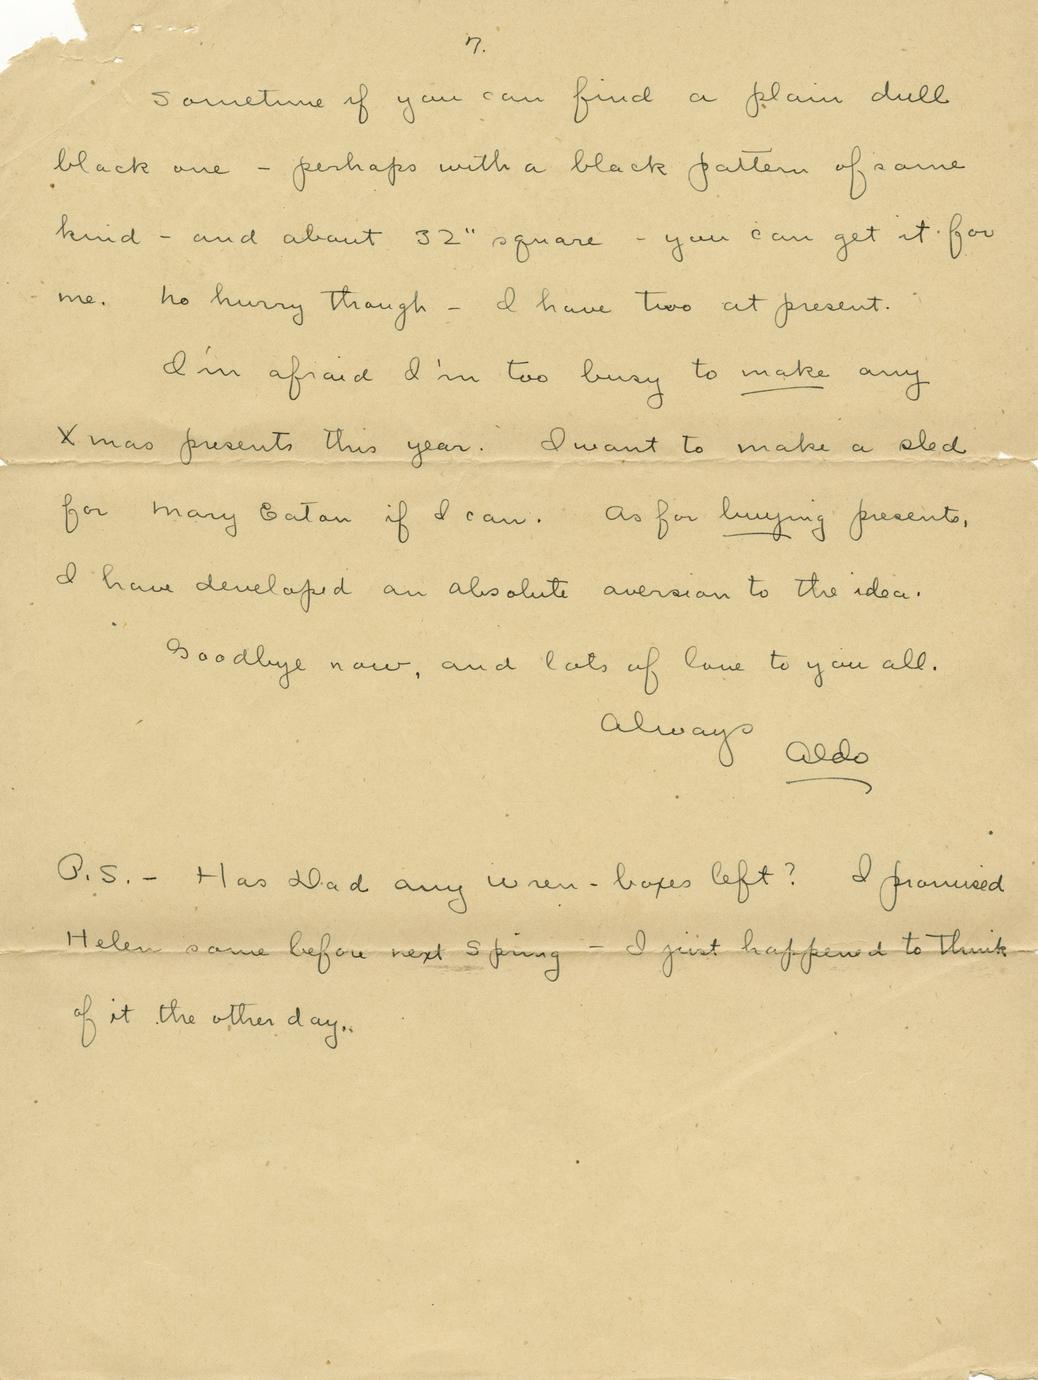 7.
Sometime if you can find a plain dull
black one - perhaps with a black pattern of some
kind - and about 32" square - you can get it for
me. No hurry though - I have two at present.
I'm afraid I'm too busy to make any
Xmas presents this year. I want to make a sled
for Mary Eaton if I can. As for buying presents,
I have developed an absolute aversion to the idea.
Goodbye now, and lots of love to you all.
Always
Aldo
P.S. - Has Dad any wren-boxes left? I promised
Helen some before next Spring - I just happened to think
of it the other day.